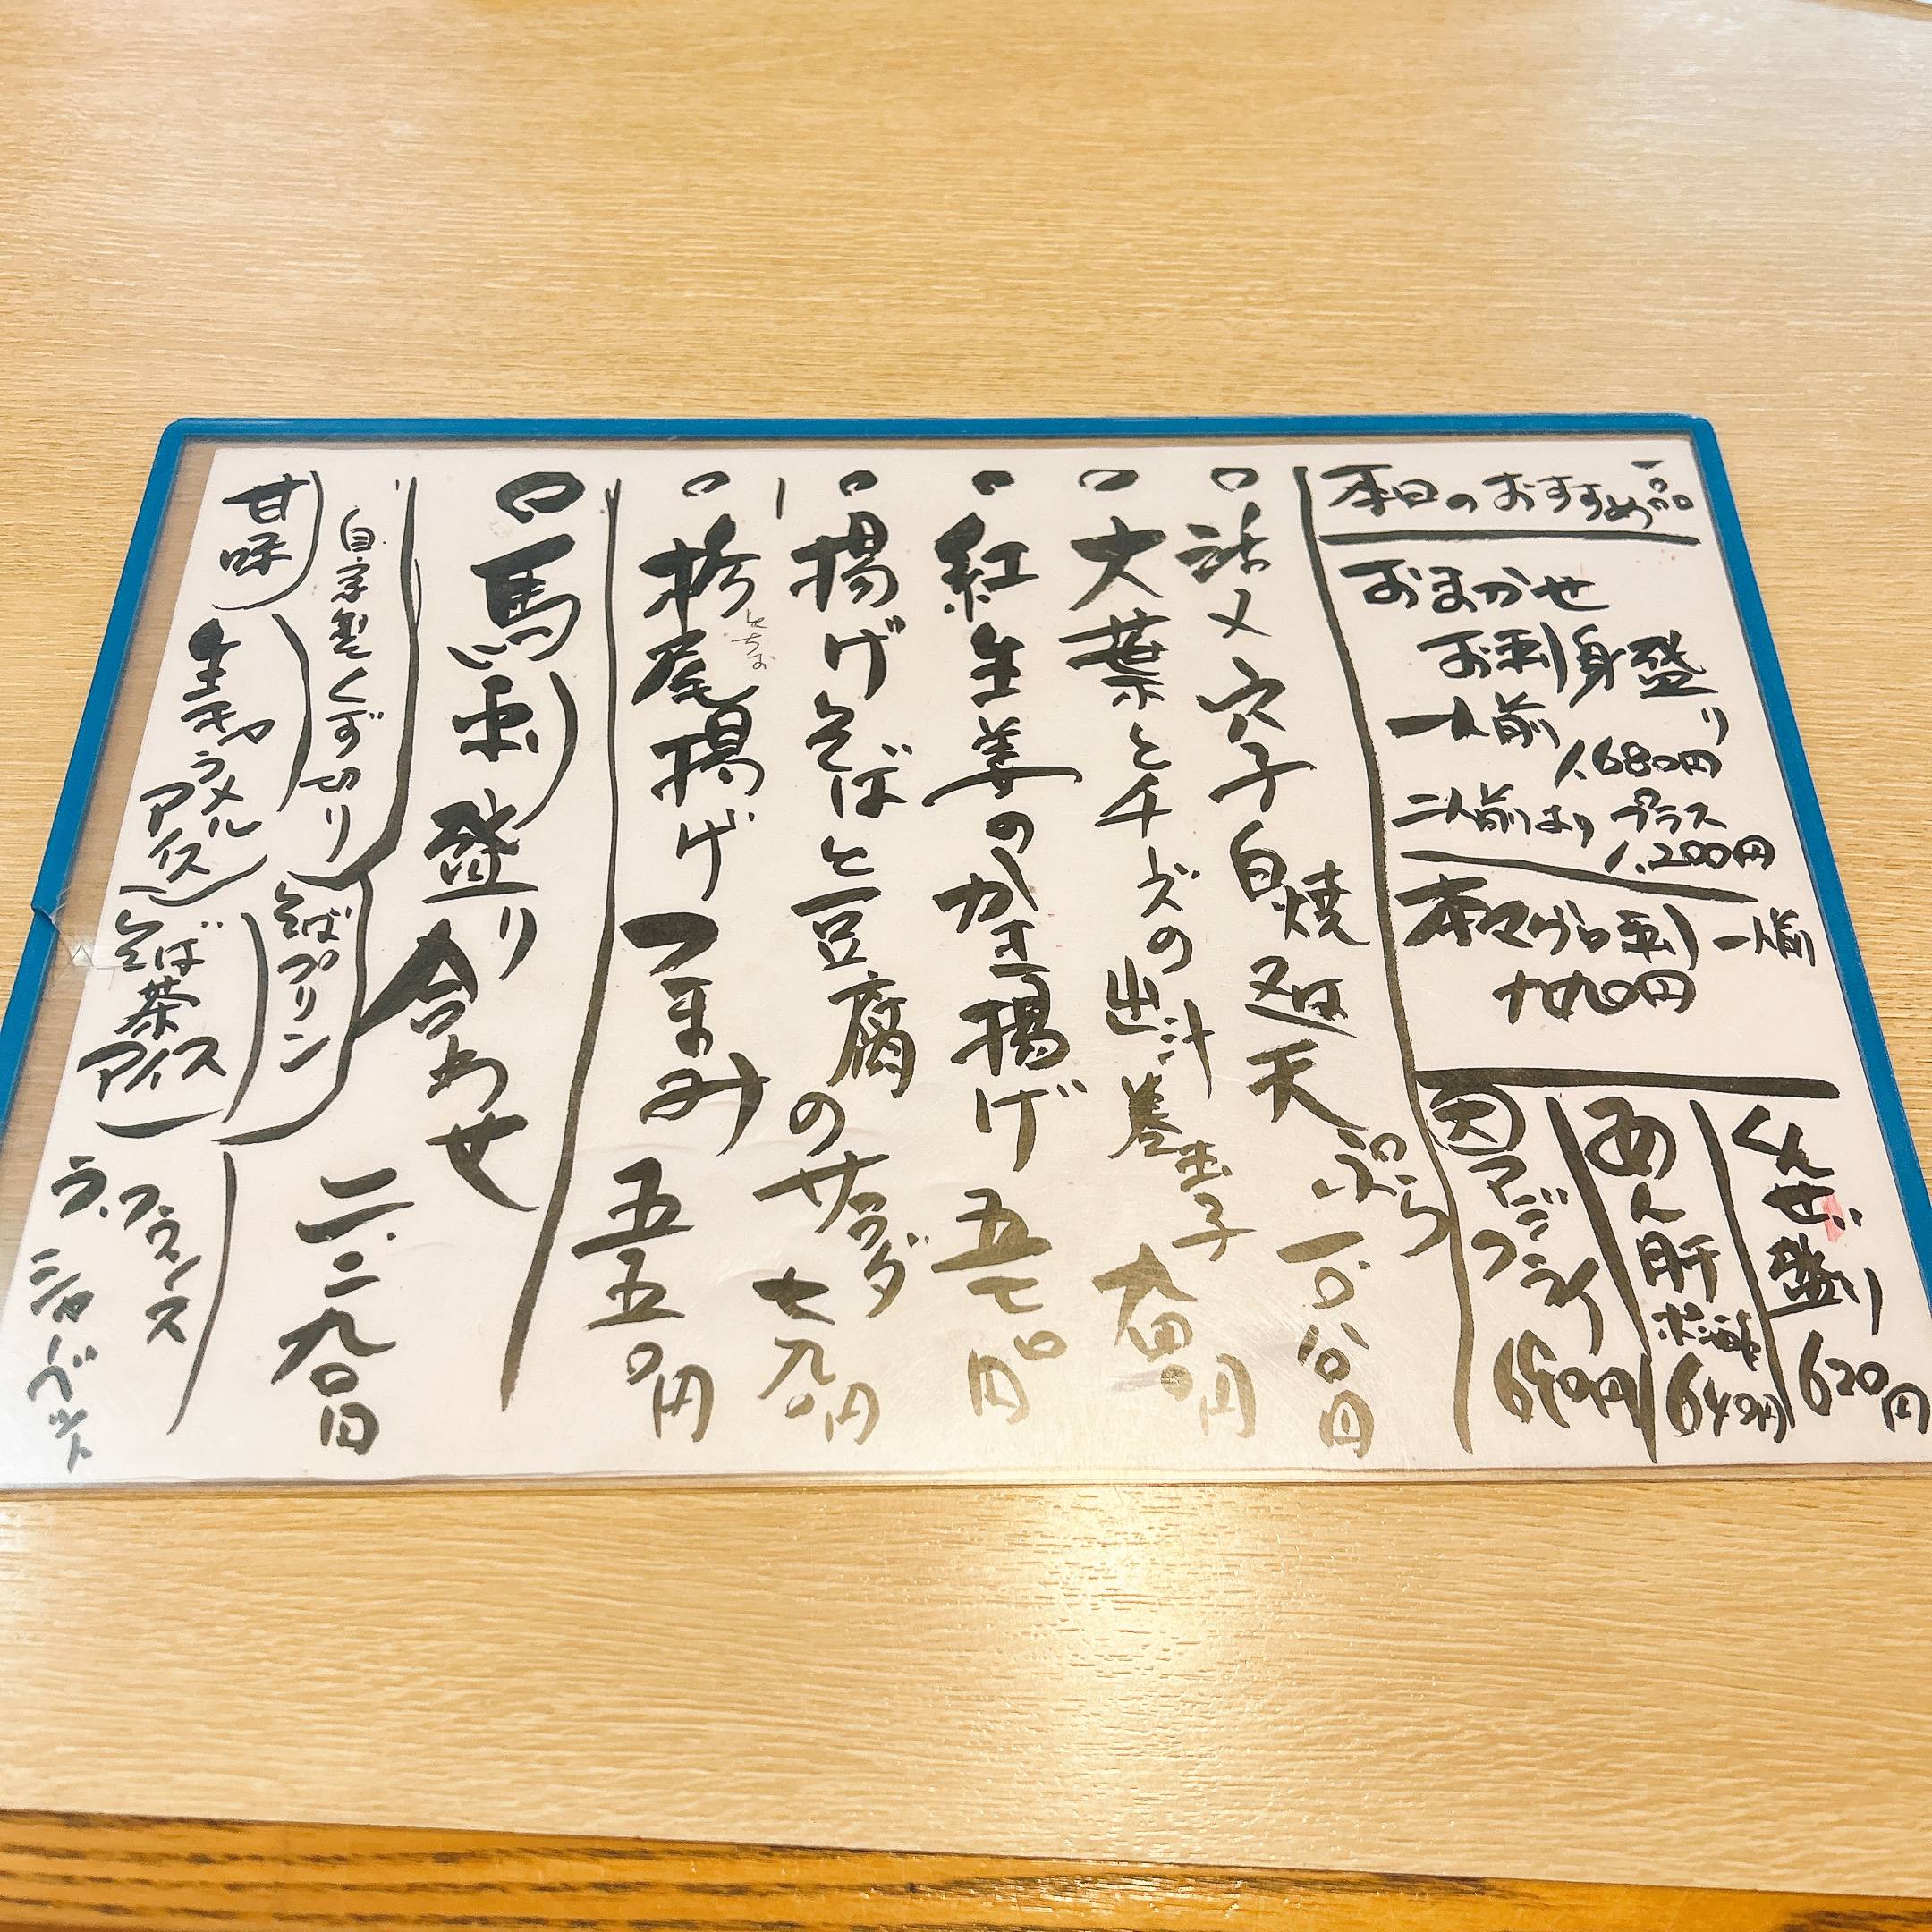 本日のおすすめ品
おまかせ
お刺身盛り
一人前 1.680円
二人前より プラス
1.200円
本マグロ刺 一人前
九九〇円
くんせい盛り 620円
あん肝ポン酢 640円
天アジフライ 690円
活〆穴子 白焼又は天ぷら 一.〇八〇円
大葉とチーズの出汁巻玉子
紅生姜のかき揚げ 五七〇円
揚げそばと豆腐のサラダ 七九〇円
栃尾揚げつまみ 五五〇円
とちお
馬刺盛り合わせ 二.二九〇円
自家製くず切り
そばプリン
甘味
生キャラメル
アイス
そば茶
アイス
ラ・フランス
シャーベット